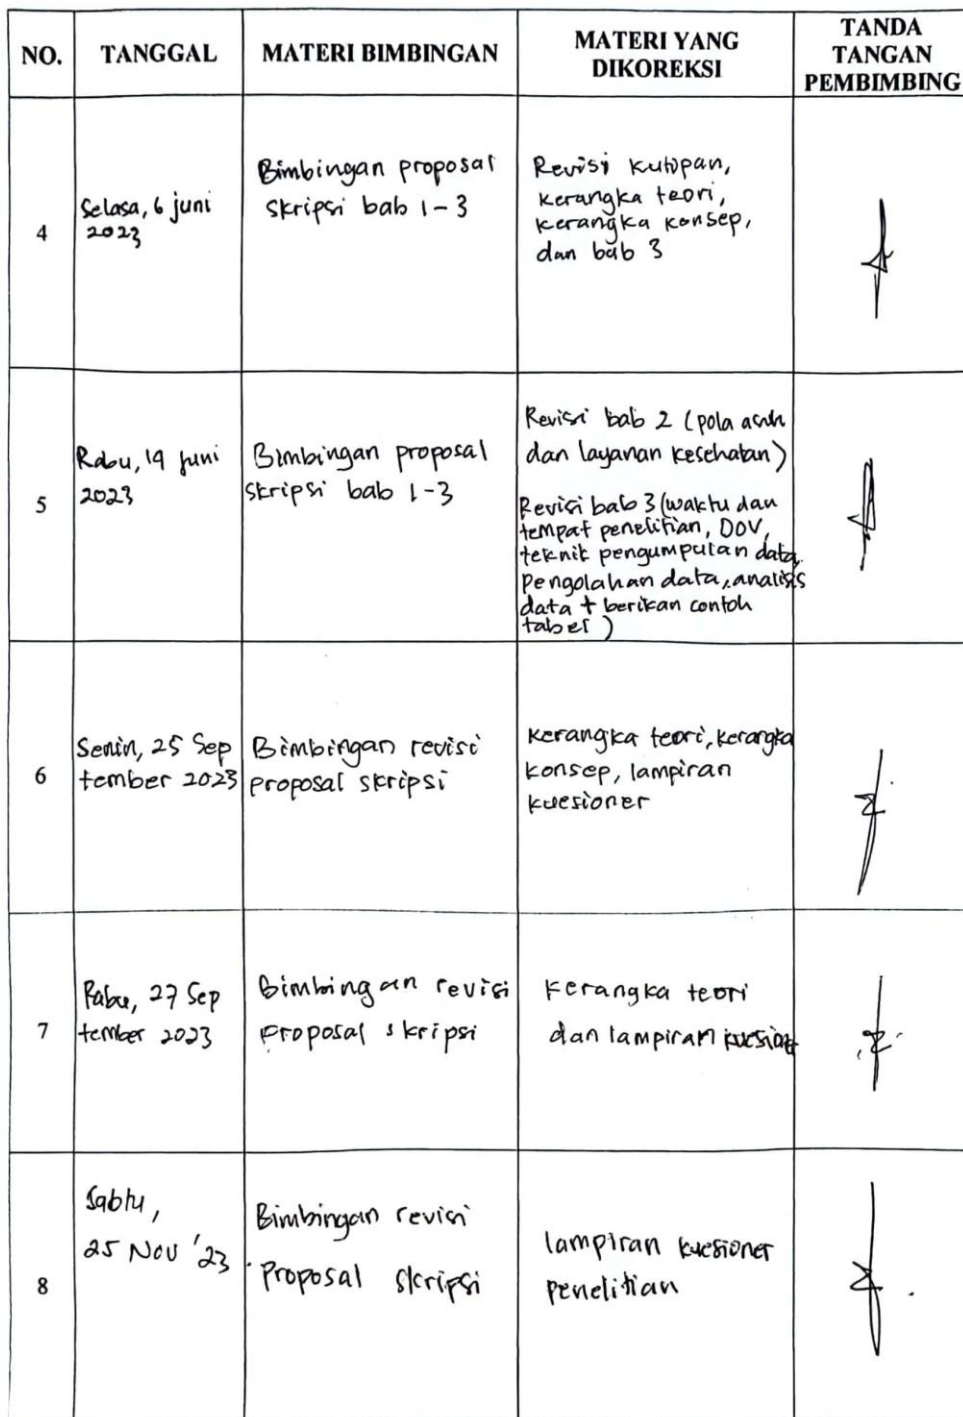 NO. TANGGAL MATERI BIMBINGAN MATERI YANG DIKOREKSI TANDA TANGAN PEMBIMBING
4
Selasa, 6 juni
2023
Bimbingan proposal
skripsi bab 1-3
Revisi kutipan,
kerangka teori,
kerangka konsep,
dan bab 3
5
Rabu, 14 juni
2023
Bimbingan proposal
skripsi bab 1-3
Revisi bab 2 (pola asuh
dan layanan kesehatan)
Revisi bab 3 (waktu dan
tempat penelitian, DOV,
teknik pengumpulan data,
pengolahan data, analisis
data + berikan contoh
tabel)
6
Senin, 25 Sep
tember 2023
Bimbingan revisi
proposal skripsi
kerangka teori, kerangka
konsep, lampiran
kuesioner
7
Rabu, 27 Sep
tember 2023
Bimbingan revisi
proposal skripsi
kerangka teori
dan lampiran kuesioner
8
Sabtu,
25 Nov '23
Bimbingan revisi
proposal skripsi
lampiran kuesioner
penelitian